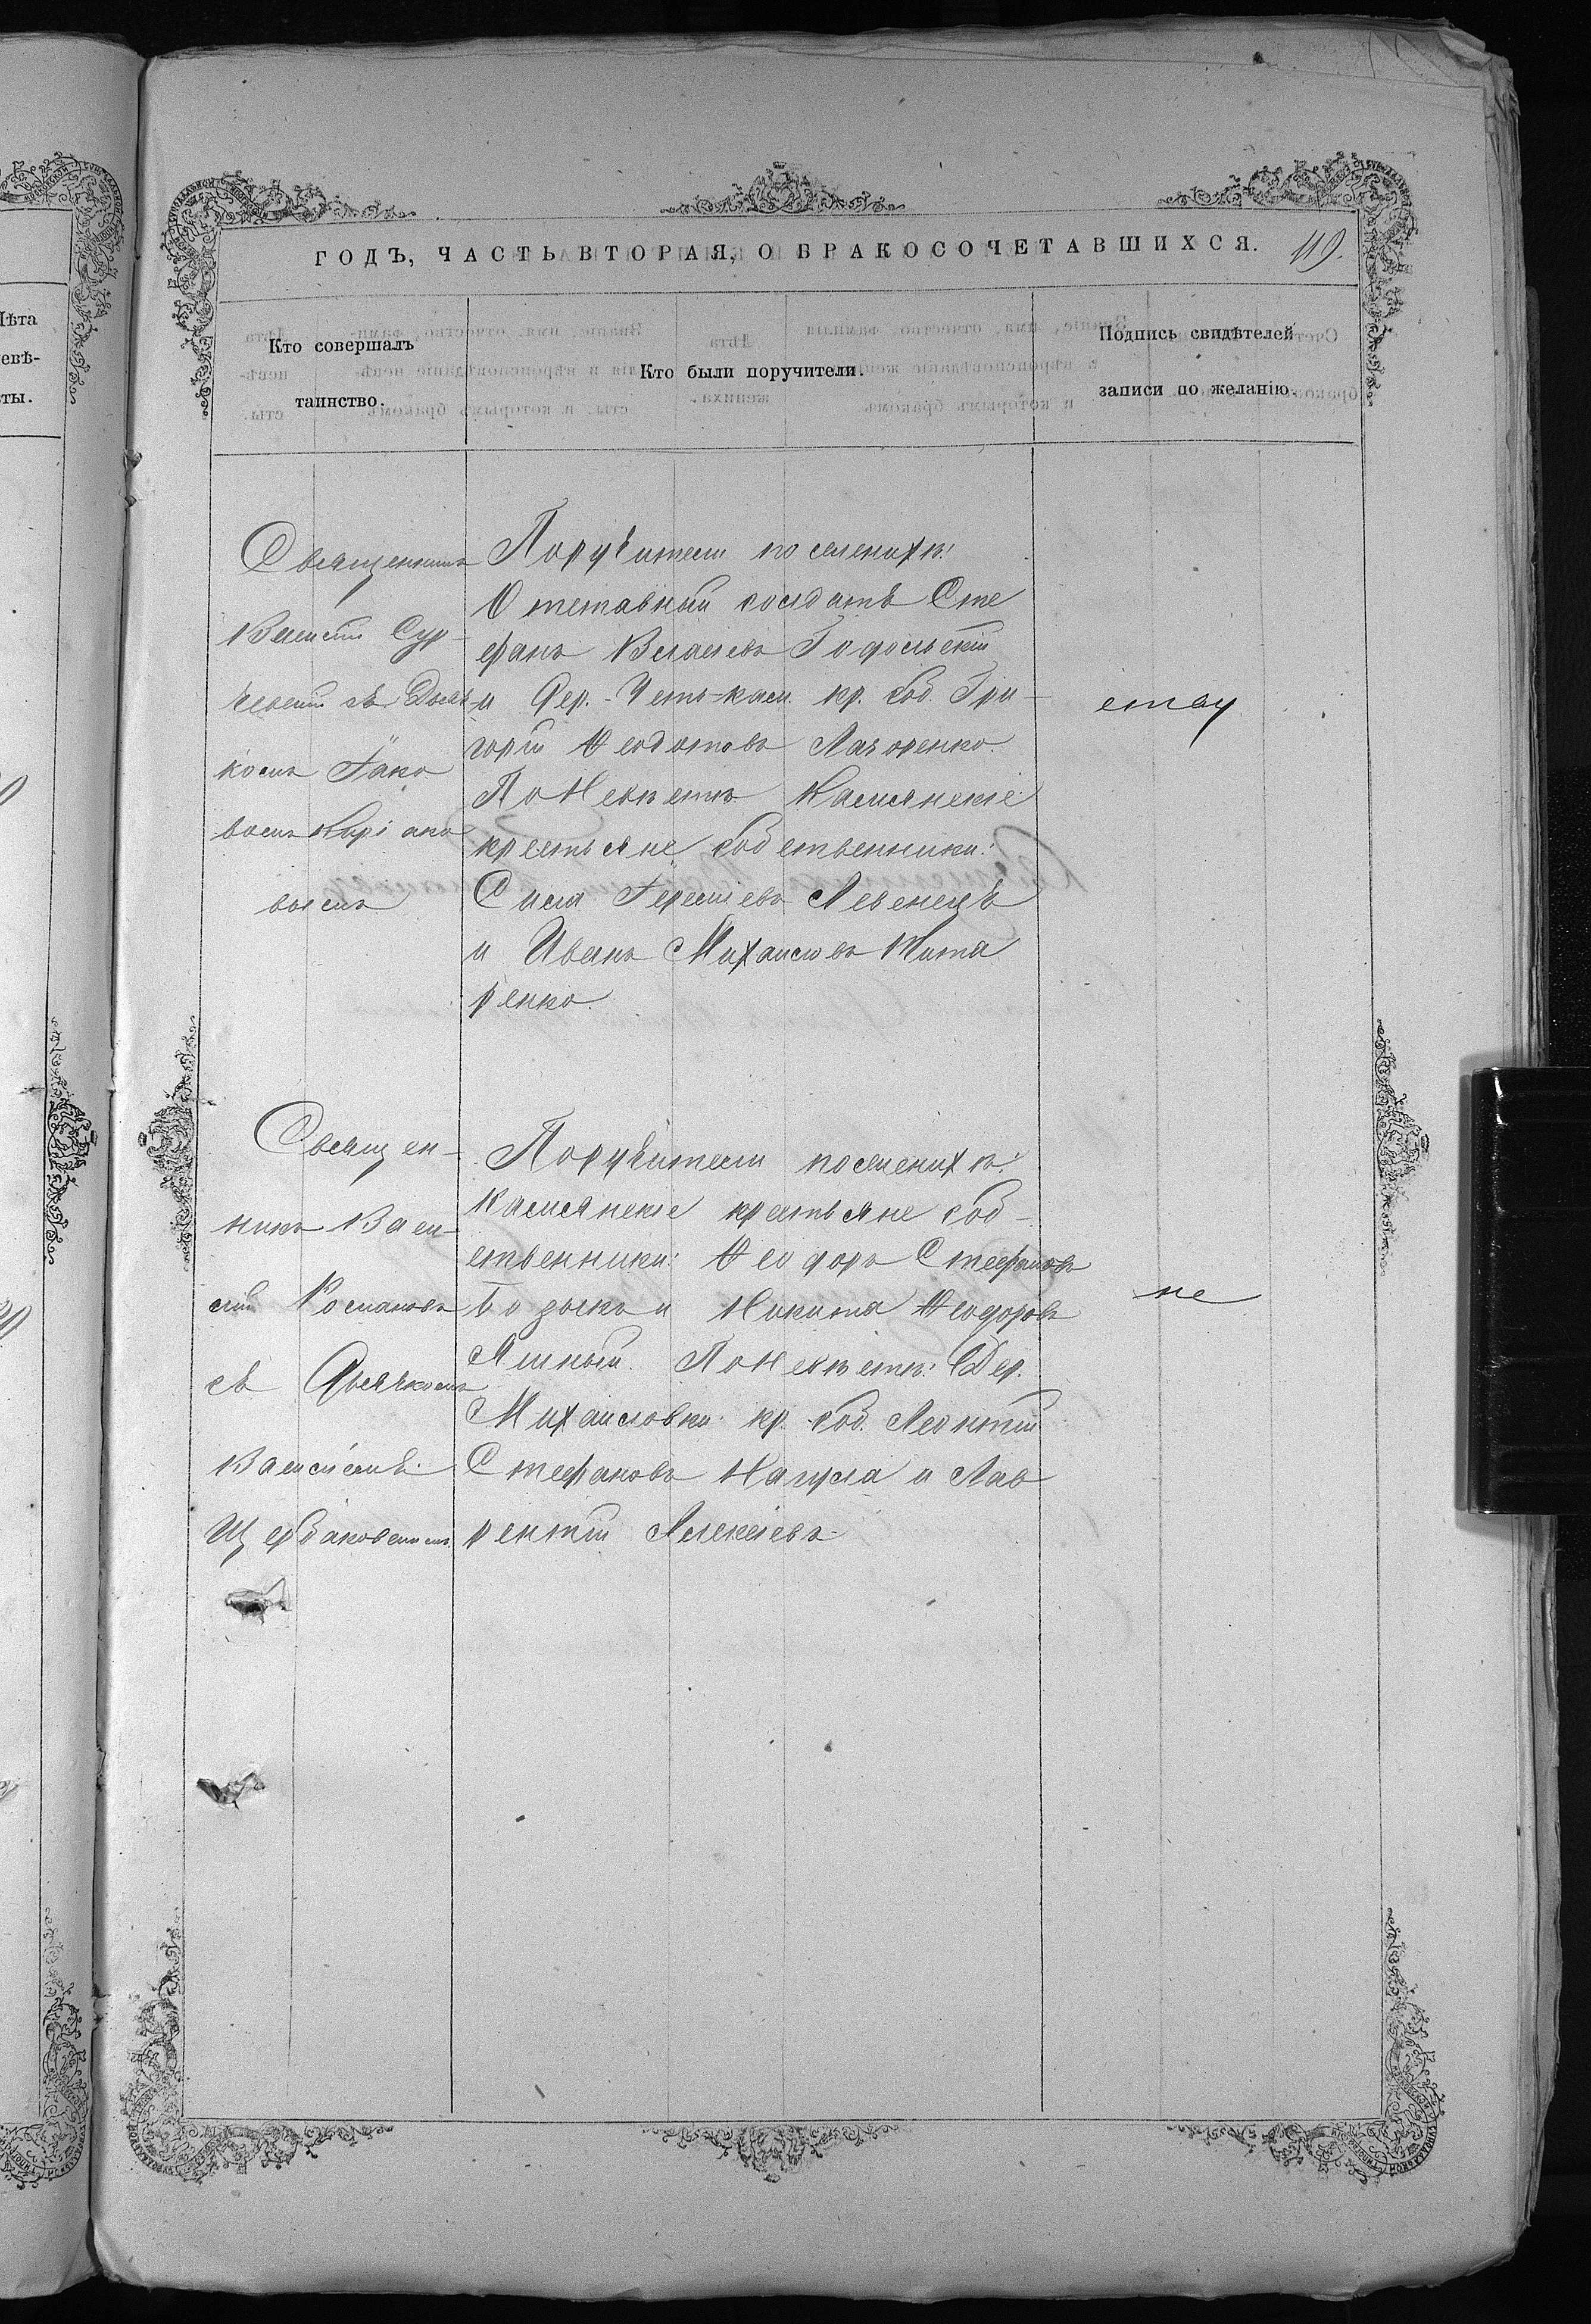 ГОДЪ, ЧАСТЬ ВТОРАЯ, О БРАКОСОЧЕТАВШИХСЯ. 119.
Кто совершалъ
таинство.
Кто были поручители.
Подпись свидѣтелей
записи по желанію.
Священникъ
съ Дья
комъ Іако
вомъ Киріако
вымъ
Поручители по женихѣ:
Отставный солдатъ Сте
фанъ Власіевъ
и Дер. кр. соб. Гри-
горій Ѳеодотовъ Лазоренко.
По Невѣстѣ Камянскіе
крестьяне собственники:
Сила Левенецъ
и Иванъ Михаиловъ Тита
ренко.
Священ-
никъ Васи-
лій Романовъ
съ Дьячкомъ
Василіемъ
Щербаковскимъ
Поручители по женихѣ:
Камянскіе крестьяне соб-
ственники: Ѳеодоръ Стефановъ
и Никита Ѳеодоровъ
Ямный. По Невѣстѣ: Дер.
Михаиловки кр. соб. Леонтій
Стефановъ и Лав
рентій Алексіевъ
не
Лѣта
невѣ-
сты.